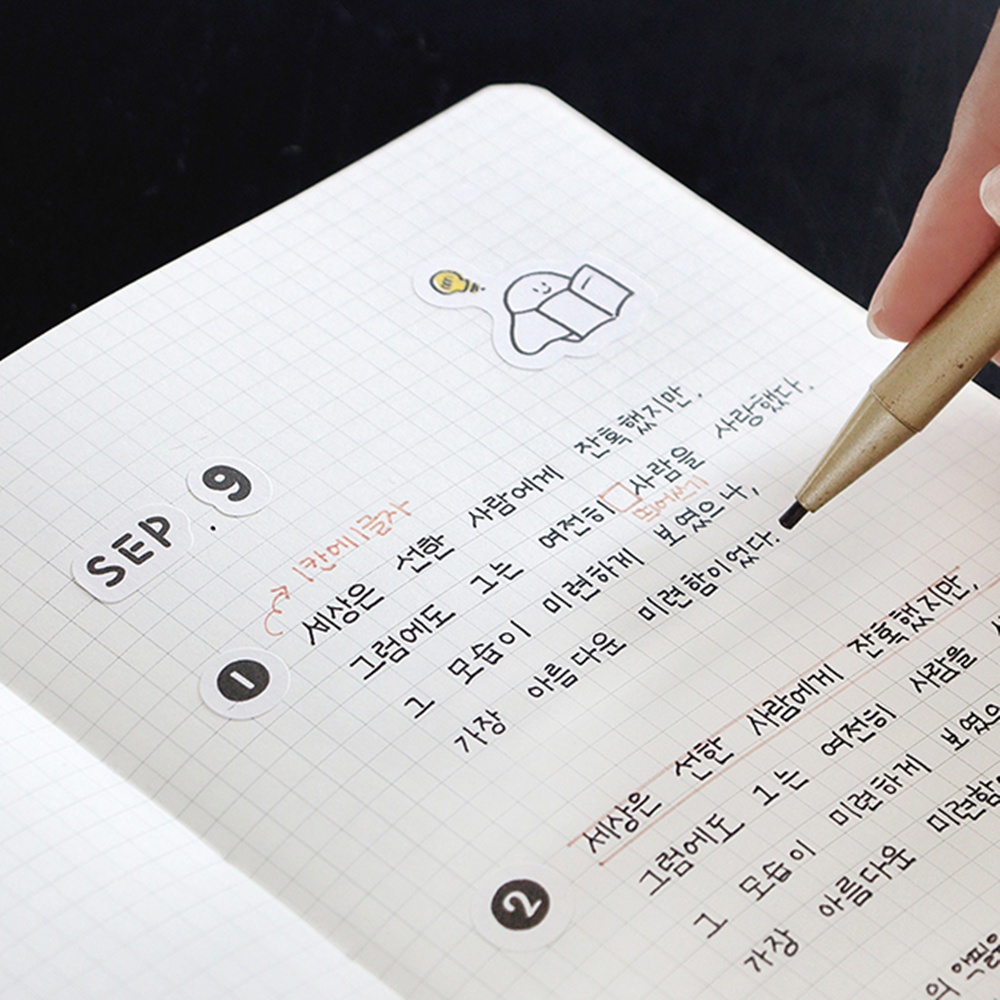 SEP. 9
1칸에 1글자
1
세상은 선한 사람에게 잔혹했지만,
그럼에도 그는 여전히 사람을 사랑했다.
띄어쓰기
그 모습이 미련하게 보였으나,
가장 아름다운 미련함이었다.
2
세상은 선한 사람에게 잔혹했지만,
그럼에도 그는 여전히 사람을
그 모습이 미련하게 보였으
가장 아름다운 미련함
의 악필을